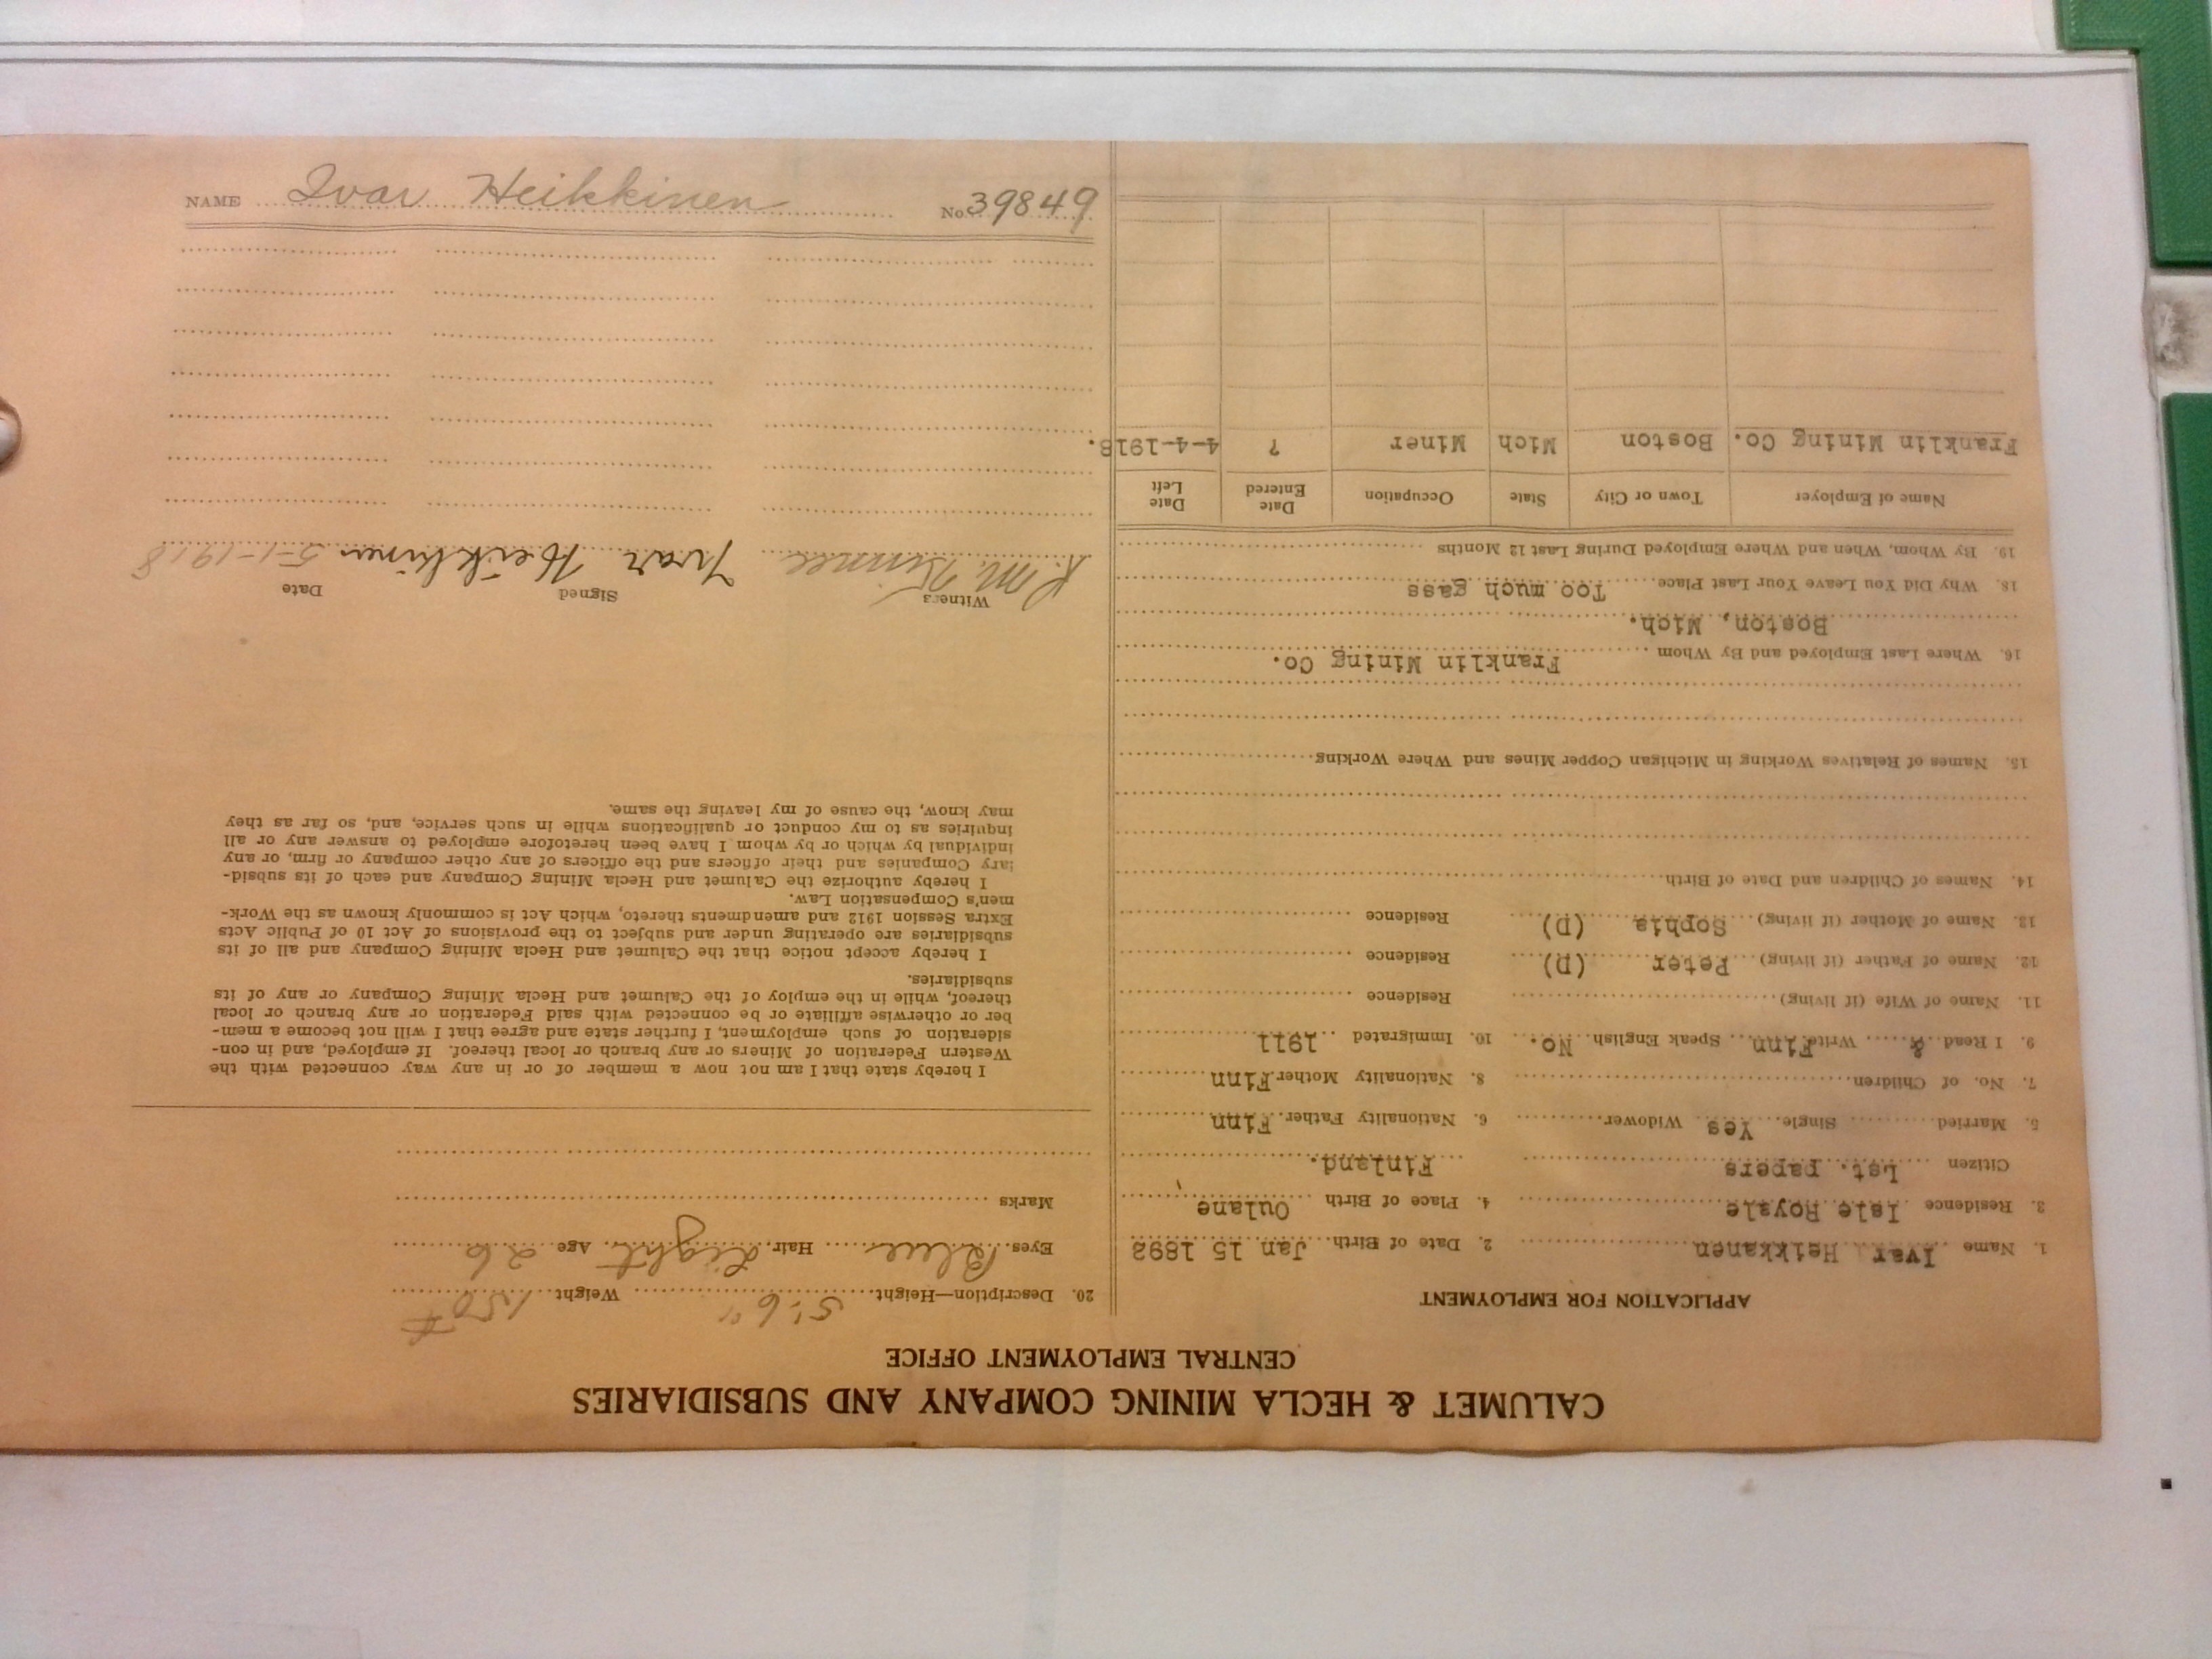 CALUMET & HECLA MINING COMPANY AND SUBSIDIARIES
CENTRAL EMPLOYMENT OFFICE
APPLICATION FOR EMPLOYMENT
1. Name Ivar Heikkanen 2. Date of Birth Jan 15 1892
3. Residence Isle Royale 4. Place of Birth Oulane
Citizen Lst. papers Finland.
5. Married Single Yes Widower 6. Nationality Father Finn
7. No. of Children 8. Nationality Mother Finn
9. I Read & Write Finn Speak English No. 10. Immigrated 1911
11. Name of Wife (if living) Residence
12. Name of Father (if living) Peter (D) Residence
13. Name of Mother (if living) Sophia (D) Residence
14. Names of Children and Date of Birth
15. Names of Relatives Working in Michigan Copper Mines and Where Working
16. Where Last Employed and By Whom Franklin Mining Co.
Boston, Mich.
18. Why Did You Leave Your Last Place Too much gass
19. By Whom, When and Where Employed During Last 12 Months
Name of Employer Town or City State Occupation Date Entered Date Left
Franklin Mining Co. Boston Mich Miner ? 4-4-1918.
20. Description—Height 5'6" Weight 150#
Eyes Blue Hair Light Age 26
Marks
I hereby state that I am not now a member of or in any way connected with the
Western Federation of Miners or any branch or local thereof. If employed, and in con-
sideration of such employment, I further state and agree that I will not become a mem-
ber or otherwise affiliate or be connected with said Federation or any branch or local
thereof, while in the employ of the Calumet and Hecla Mining Company or any of its
subsidiaries.
I hereby accept notice that the Calumet and Hecla Mining Company and all of its
subsidiaries are operating under and subject to the provisions of Act 10 of Public Acts
Extra Session 1912 and amendments thereto, which Act is commonly known as the Work-
men's Compensation Law.
I hereby authorize the Calumet and Hecla Mining Company and each of its subsid-
iary Companies and their officers and the officers of any other company or firm, or any
individual by which or by whom I have been heretofore employed to answer any or all
inquiries as to my conduct or qualifications while in such service, and, so far as they
may know, the cause of my leaving the same.
Witness Signed Date
R. M. Ivar Heikkinen 5-1-1918
NAME Ivar Heikkinen No. 39849